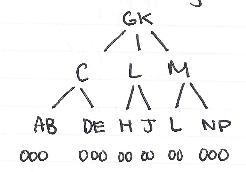 GK
C L M
AB DE H J L NP
000 000 00 00 00 000